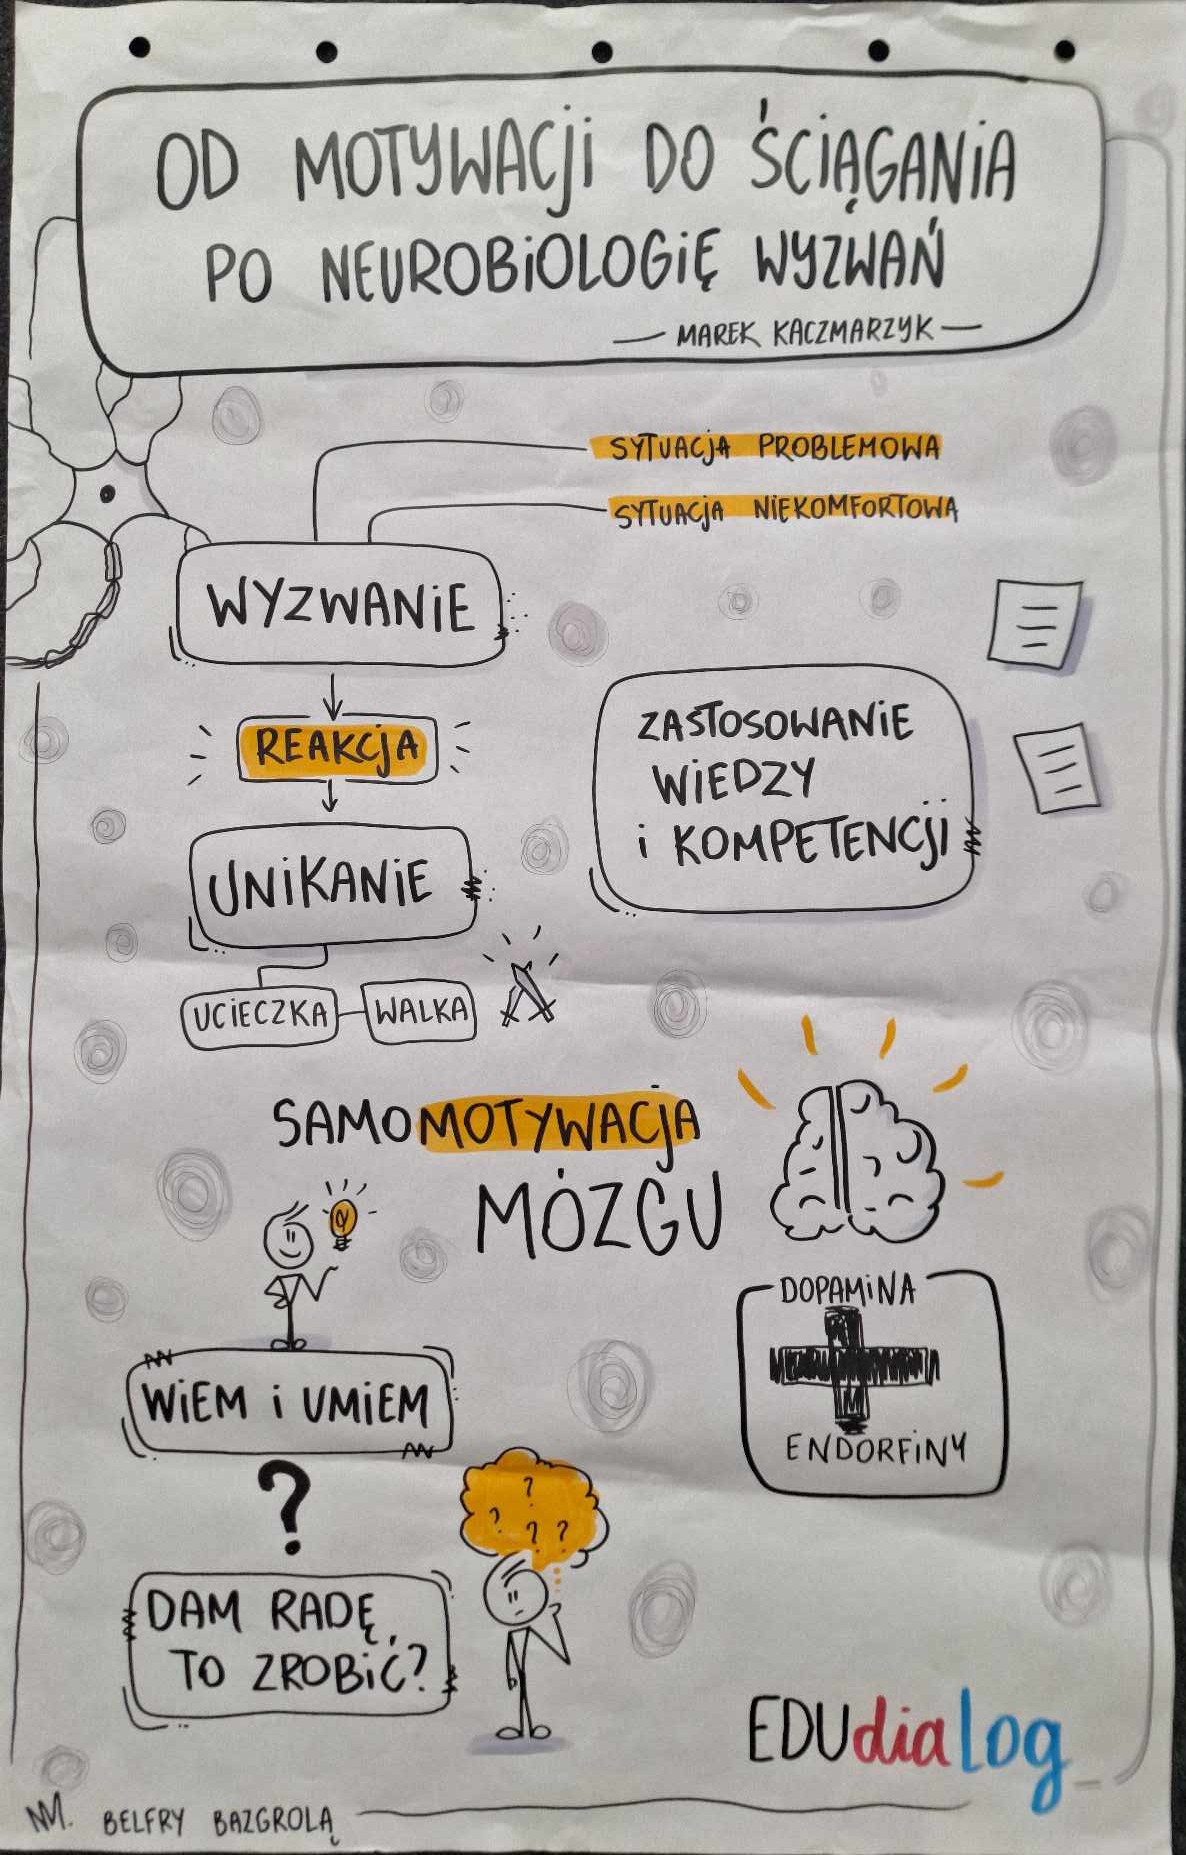 OD MOTYWACJI DO ŚCIĄGANIA
PO NEUROBIOLOGIĘ WYZWAŃ
— MAREK KACZMARZYK —
SYTUACJA PROBLEMOWA
SYTUACJA NIEKOMFORTOWA
WYZWANIE
REAKCJA
UNIKANIE
UCIECZKA
WALKA
ZASTOSOWANIE
WIEDZY
i KOMPETENCJI
SAMOMOTYWACJA
MÓZGU
DOPAMINA
ENDORFINY
WIEM i UMIEM
?
?
? ? ?
DAM RADĘ,
TO ZROBIĆ?
EDUdialog_
NM. BELFRY BAZGROLĄ